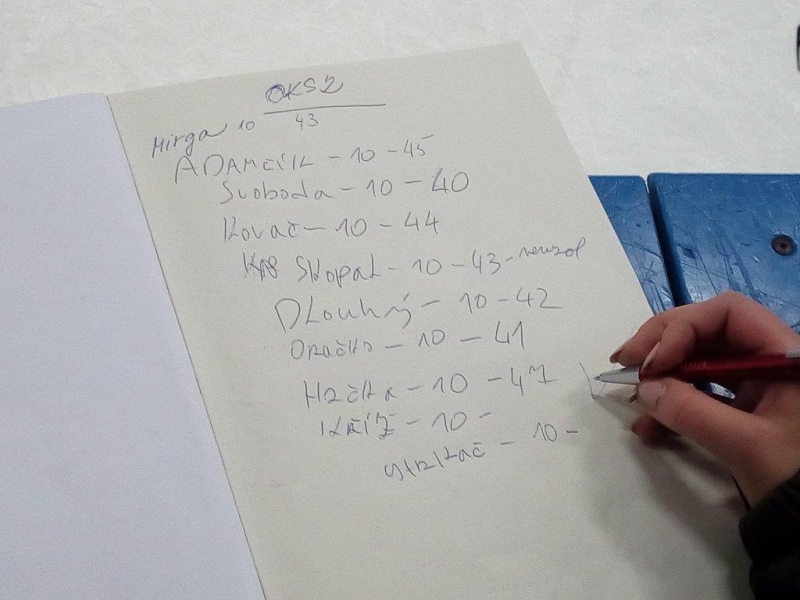 OKS2
Mirga 10 43
ADAMČÍK - 10 - 45
Svoboda - 10 - 40
Kovač - 10 - 44
Skopal - 10 - 43 -
Dlouhý - 10 - 42
Oračko - 10 - 41
Hačka - 10 - 47
KŘÍŽ - 10 -
- 10 -